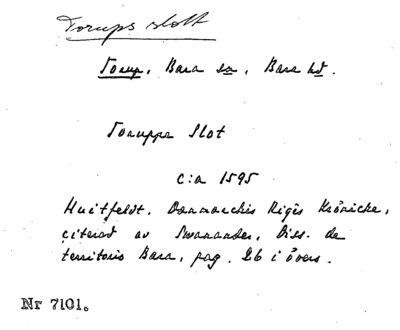 Torups slott
Torup, Bara sn, Bara hd.
Toruppe Slot
c:a 1595
Huitfeldt. Danmarckis Rigis Krönicke,
citerad av Swanander, Diss. de
territorio Bara, pag. 26 i övers.
Nr 7101.